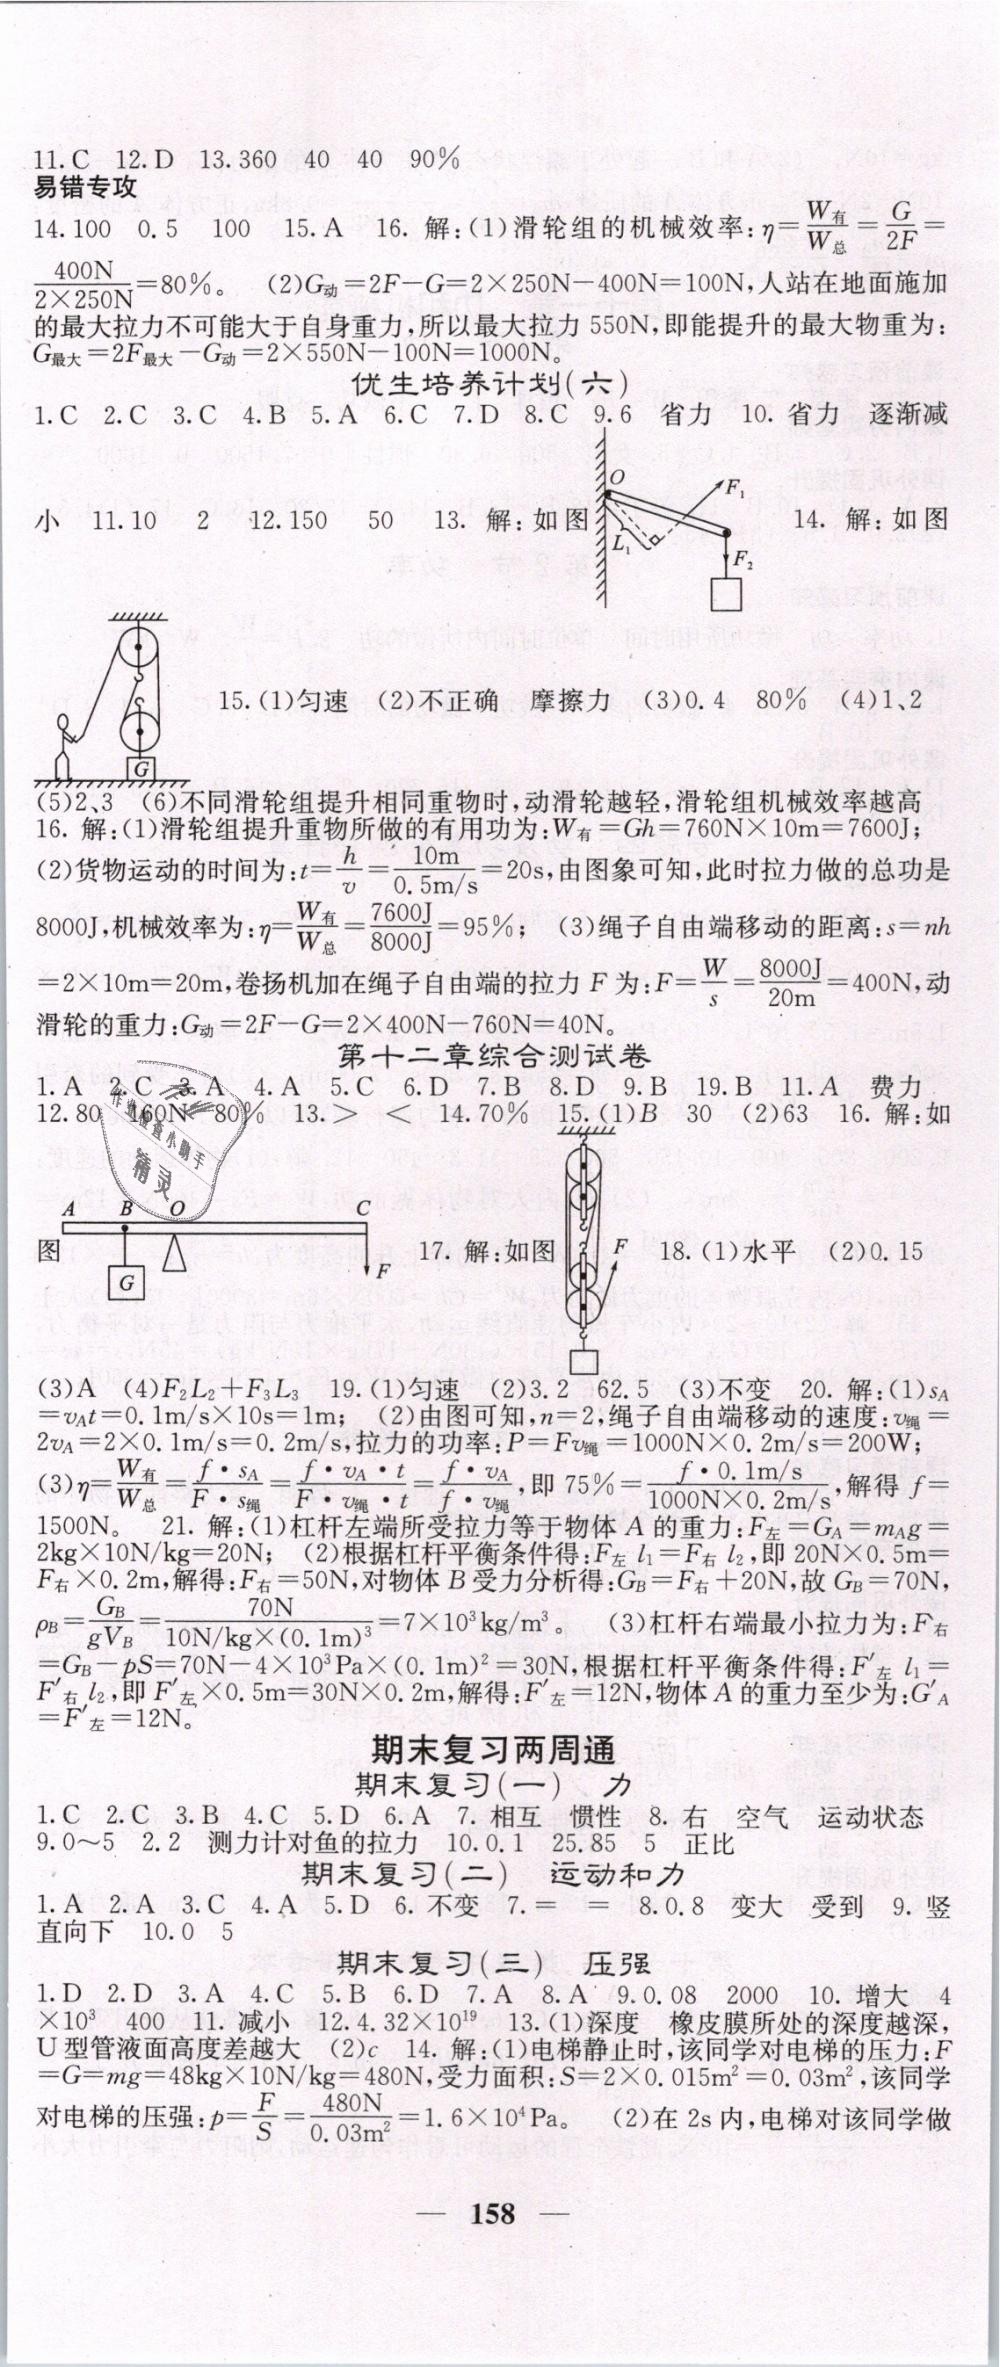 11.C 12.D 13.360 40 40 90%
易错专攻
14.100 0.5 100 15.A 16. 解:(1)滑轮组的机械效率:η=W有/W总=G/2F=
400N/2×250N=80%。 (2)G动=2F-G=2×250N-400N=100N,人站在地面施加
的最大拉力不可能大于自身重力,所以最大拉力550N,即能提升的最大物重为:
G最大=2F最大-G动=2×550N-100N=1000N。
优生培养计划(六)
1.C 2.C 3.C 4.B 5.A 6.C 7.D 8.C 9.6 省力 10. 省力 逐渐减
小 11.10 2 12.150 50 13. 解:如图 O F₁ L₁ F₂ 14. 解:如图
G 15.(1)匀速 (2)不正确 摩擦力 (3)0.4 80% (4)1、2
(5)2、3 (6)不同滑轮组提升相同重物时,动滑轮越轻,滑轮组机械效率越高
16. 解:(1)滑轮组提升重物所做的有用功为:W有=Gh=760N×10m=7600J;
(2)货物运动的时间为:t=h/v=10m/0.5m/s=20s,由图象可知,此时拉力做的总功是
8000J,机械效率为:η=W有/W总=7600J/8000J=95%; (3)绳子自由端移动的距离:s=nh
=2×10m=20m,卷扬机加在绳子自由端的拉力F为:F=W/s=8000J/20m=400N,动
滑轮的重力:G动=2F-G=2×400N-760N=40N。
第十二章综合测试卷
1.A 2.C 3.A 4.A 5.C 6.D 7.B 8.D 9.B 19.B 11.A 费力
12.80 160N 80% 13.> < 14.70% 15.(1)B 30 (2)63 16. 解:如
作业检查小助手
精灵
A B O C
图 G F 17. 解:如图 F 18.(1)水平 (2)0.15
(3)A (4)F₂L₂+F₃L₃ 19.(1)匀速 (2)3.2 62.5 (3)不变 20. 解:(1)sA
=vAt=0.1m/s×10s=1m; (2)由图可知,n=2,绳子自由端移动的速度:v绳=
2vA=2×0.1m/s=0.2m/s,拉力的功率:P=Fv绳=1000N×0.2m/s=200W;
(3)η=W有/W总=f·sA/F·s绳=f·vA·t/F·v绳·t=f·vA/f·v绳,即75%=f·0.1m/s/1000N×0.2m/s,解得f=
1500N。 21. 解:(1)杠杆左端所受拉力等于物体A的重力:F左=GA=mAg=
2kg×10N/kg=20N; (2)根据杠杆平衡条件得:F左l₁=F右l₂,即20N×0.5m=
F右×0.2m,解得:F右=50N,对物体B受力分析得:GB=F右+20N,故GB=70N,
ρB=GB/gVB=70N/10N/kg×(0.1m)³=7×10³kg/m³。 (3)杠杆右端最小拉力为:F右
=GB-pS=70N-4×10³Pa×(0.1m)²=30N,根据杠杆平衡条件得:F′左l₁=
F′右l₂,即F′左×0.5m=30N×0.2m,解得:F′左=12N,物体A的重力至少为:G′A
=F′左=12N。
期末复习两周通
期末复习(一) 力
1.C 2.C 3.B 4.C 5.D 6.A 7. 相互 惯性 8. 右 空气 运动状态
9.0~5 2.2 测力计对鱼的拉力 10.0.1 25.85 5 正比
期末复习(二) 运动和力
1.A 2.A 3.C 4.A 5.D 6. 不变 7.= = 8.0.8 变大 受到 9. 竖
直向下 10.0 5
期末复习(三) 压强
1.D 2.D 3.A 4.C 5.B 6.D 7.A 8.A 9.0.08 2000 10. 增大 4
×10³ 400 11. 减小 12.4.32×10¹⁹ 13.(1)深度 橡皮膜所处的深度越深,
U型管液面高度差越大 (2)c 14. 解:(1)电梯静止时,该同学对电梯的压力:F
=G=mg=48kg×10N/kg=480N,受力面积:S=2×0.015m²=0.03m²,该同学
对电梯的压强:p=F/S=480N/0.03m²=1.6×10⁴Pa。 (2)在2s内,电梯对该同学做
— 158 —